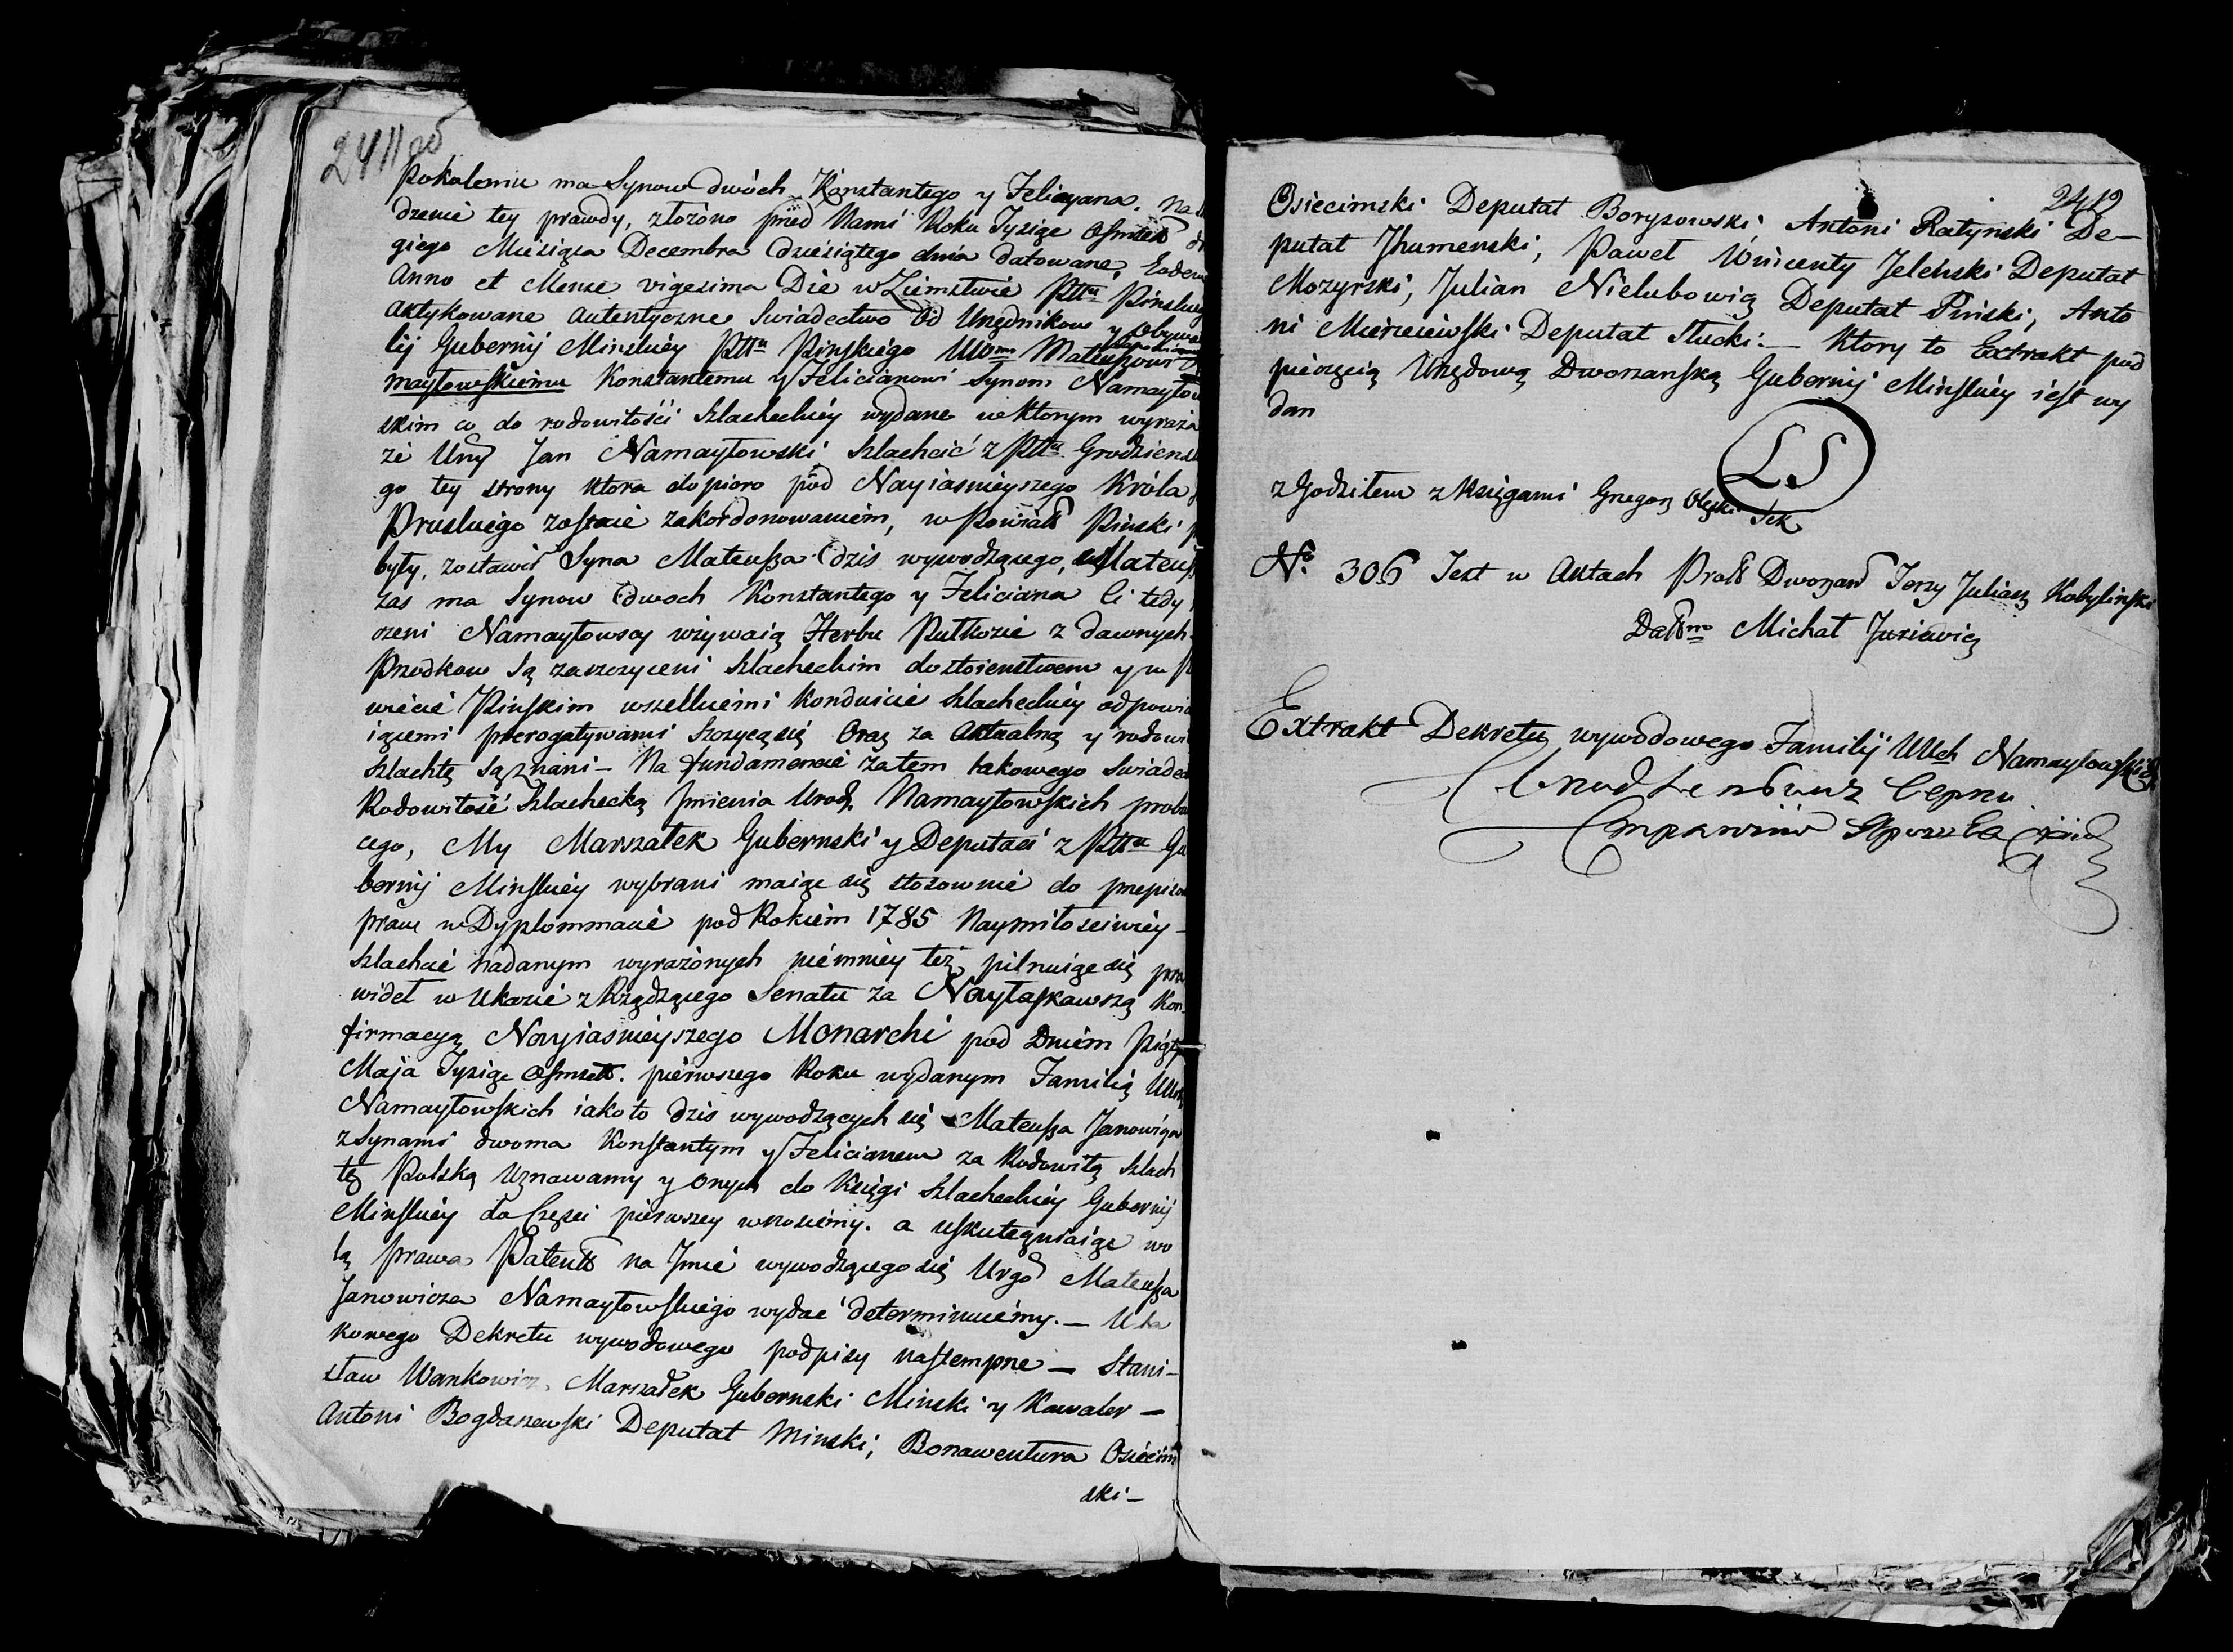 2411 об
pokoleniu ma Synow dwóch Konstantego y Felicyana. na
dzenie tey prawdy, złożono przed Nami Roku Tysiąc Osmset
giego Miesiąca Decembra dziesiątego dnia datowane, Eodem
Anno et Mense vigesima Die w Ziemstwie Pttu Pinskie
aktykowane autentyczne Swiadectwo od Urzędnikow y obywa
lij Gubernij Minskiéy Pttu Pinskiego WWm Mateuszowi
maytowskiemu Konstantemu y Felicianowi Synom Namayto
skim co do rodowitości Szlacheckiéy wydane w ktorym wyraża
że Urod Jan Namaytowski Szlachcić z Pttu Grodziens
go tey strony ktora dopioro pod Nayiasnieyszego Króla
Pruskiego zostaie zakordonowaniem, w Powiat Pinski
były, zostawił Syna Mateusza dzis wywodzącego, Mateusz
zas ma Synow dwoch Konstantego y Feliciana Ci tedy
Namaytowscy używaią Herbu Putkozie z dawnych
Przodkow są zaszczyceni Szlacheckim dostoienstwem y w
wiecie Pinskim wszelkiemi Konduicie Szlacheckiéy odpowia
iącemi prerogatywami szczycą się Oraz za Aktualną y rodowi
Szlachtę są znani – Na fundamencie zatem takowego swiadec
Rodowitość Szlachecką Jmienia Urod. Namaytowskich probu
cego, My Marszałek Gubernski y Deputaci z Pttu Gu
bernij Minskiéy wybrani maiąc się stosownie do przepiso
praw w Dyplommacie pod Rokiem 1785 Naymiłosciwiéy –
Szlachcie nadanym wyrażonych niémniéy też pilnuiąc się pra
wideł w Ukazie z Rządzącego Senatu za Nayłaskawszą Kon
firmacyą Nayiasnieyszego Monarchi pod Dniem Piąty
Maja Tysiąc Osmsett. pierwszego Roku wydanym Familią
Namaytowskich iako to dzis wywodzących się Mateusza Janowicza
z Synami dwoma Konstantym y Felicianem za Rodowitą Szlach
tę Polską Uznawamy y onych do Księgi Szlacheckiéy Gubernij
Minskiéy do Częsci pierwszey wnosiemy. a uskuteczniaiąc wo
lą prawa Patentt na Jmie wywodzącego się Urgo Mateusza
Janowicza Namaytowskiego wydać determinuiemy. – U ta
kowego Dekretu wywodowego podpisy nastempne – Stani–
sław Wankowicz, Marszałek Gubernski Minski y Kawaler –
Antoni Bogdaszewski Deputat Minski; Bonawentura Osiecim
ski –
2412
Osiecimski Deputat Boryzowski Antoni Ratyński De–
putat Jhumenski, Paweł Wincenty Jeleński Deputat
Mozyrski, Julian Nielubowicz Deputat Pinski, Anto
ni Mierzeiewski Deputat Słucki: – Ktory to Extrakt pod
pieczęcią Urzędową Dworzanską Gubernij Minskiéy iest wy
dan
LS
zgodziłem z Księgami Grzegorz Sek
No. 306 Jest w Aktach Jerzy Juliasz Kobyliński
Michał Jusiewicz
Extrakt Dekretu wywodowego Familij WUch Namaytowskich